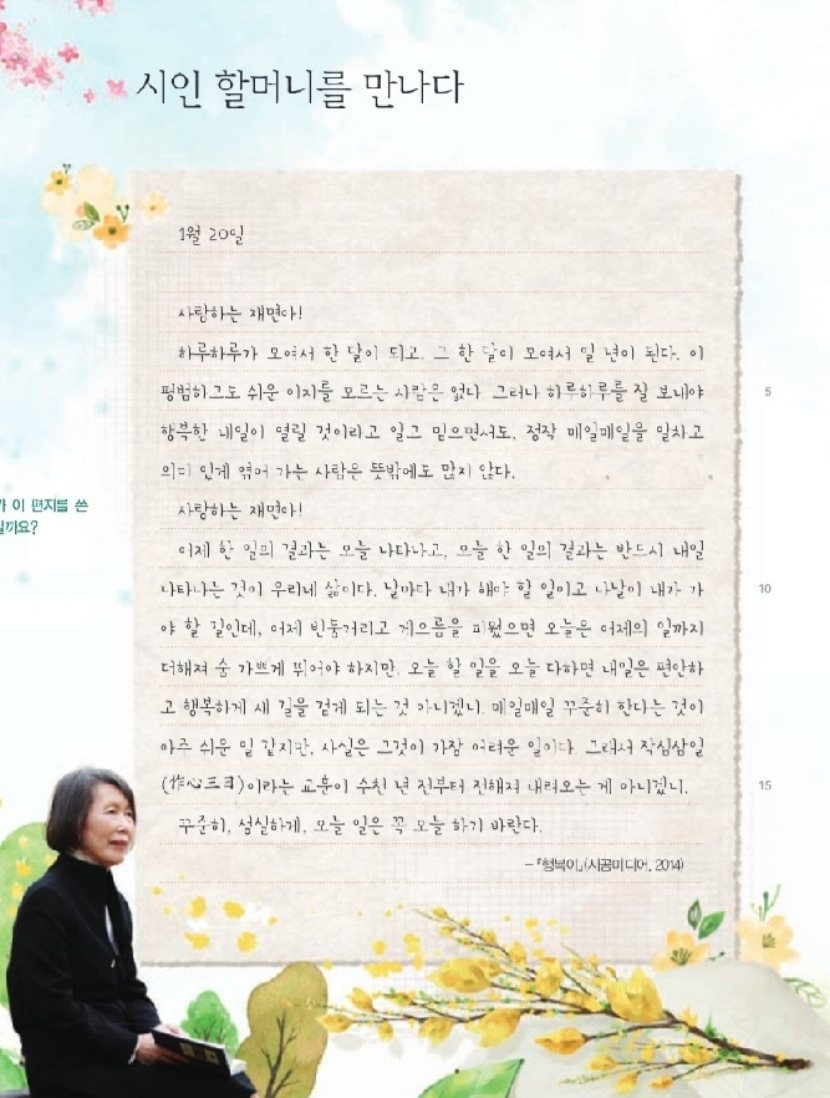 시인 할머니를 만나다
1월 20일
사랑하는 재면아!
하루하루가 모여서 한 달이 되고, 그 한 달이 모여서 일 년이 된다. 이
평범하고도 쉬운 이치를 모르는 사람은 없다. 그러나 하루하루를 잘 보내야
5
행복한 내일이 열릴 것이라고 알고 믿으면서도, 정작 매일매일을 알차고
의미 있게 엮어 가는 사람은 뜻밖에도 많지 않다.
가 이 편지를 쓴
일까요?
사랑하는 재면아!
어제 한 일의 결과는 오늘 나타나고, 오늘 한 일의 결과는 반드시 내일
나타나는 것이 우리네 삶이다. 날마다 내가 해야 할 일이고 나날이 내가 가
10
야 할 길인데, 어제 빈둥거리고 게으름을 피웠으면 오늘은 어제의 일까지
더해져 숨 가쁘게 뛰어야 하지만, 오늘 할 일을 오늘 다하면 내일은 편안하
고 행복하게 새 길을 걷게 되는 것 아니겠니. 매일매일 꾸준히 한다는 것이
아주 쉬운 일 같지만, 사실은 그것이 가장 어려운 일이다. 그래서 작심삼일
(作心三日)이라는 교훈이 수천 년 전부터 전해져 내려오는 게 아니겠니.
15
꾸준히, 성실하게, 오늘 일은 꼭 오늘 하기 바란다.
- 『행복이』(시공미디어, 2014)